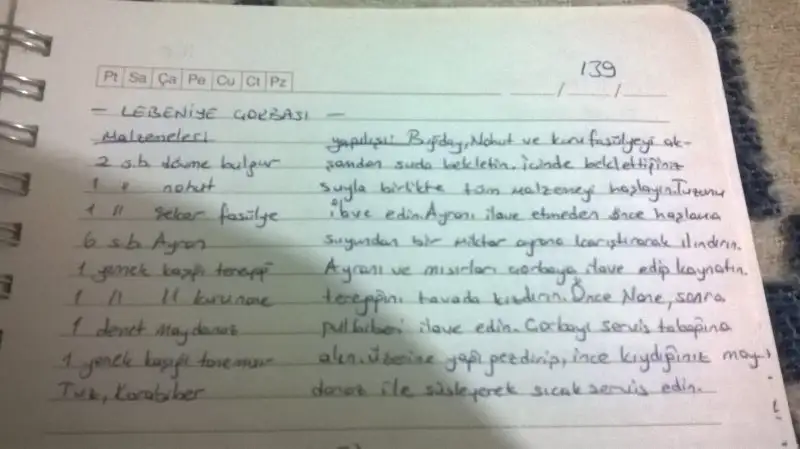 139
Pt Sa Ça Pe Cu Ct Pz
— LEBENİYE ÇORBASI —
Malzemeleri
2 s.b. dövme bulgur
1 " nohut
1 " şeker fasülye
6 s.b. Ayran
1 yemek kaşığı tereyağı
1 " " kuru nane
1 demet maydanoz
1 yemek kaşığı tane mısır
Tuz, Karabiber
yapılışı: Buğday, Nohut ve kuru fasülyeyi ak-
şamdan suda bekletin. içinde beklettiğiniz
suyla birlikte tüm malzemeyi haşlayın. Tuzunu
ilave edin. Ayranı ilave etmeden önce haşlama
suyundan bir miktar ayrana karıştırarak ılındırın.
Ayranı ve mısırları çorbaya ilave edip kaynatın.
tereyağını tavada kızdırın. Önce Nane, sonra
pulbiberi ilave edin. Çorbayı servis tabağına
alın. üzerine yağı gezdirip, ince kıydığınız may-
danoz ile süsleyerek sıcak servis edin.